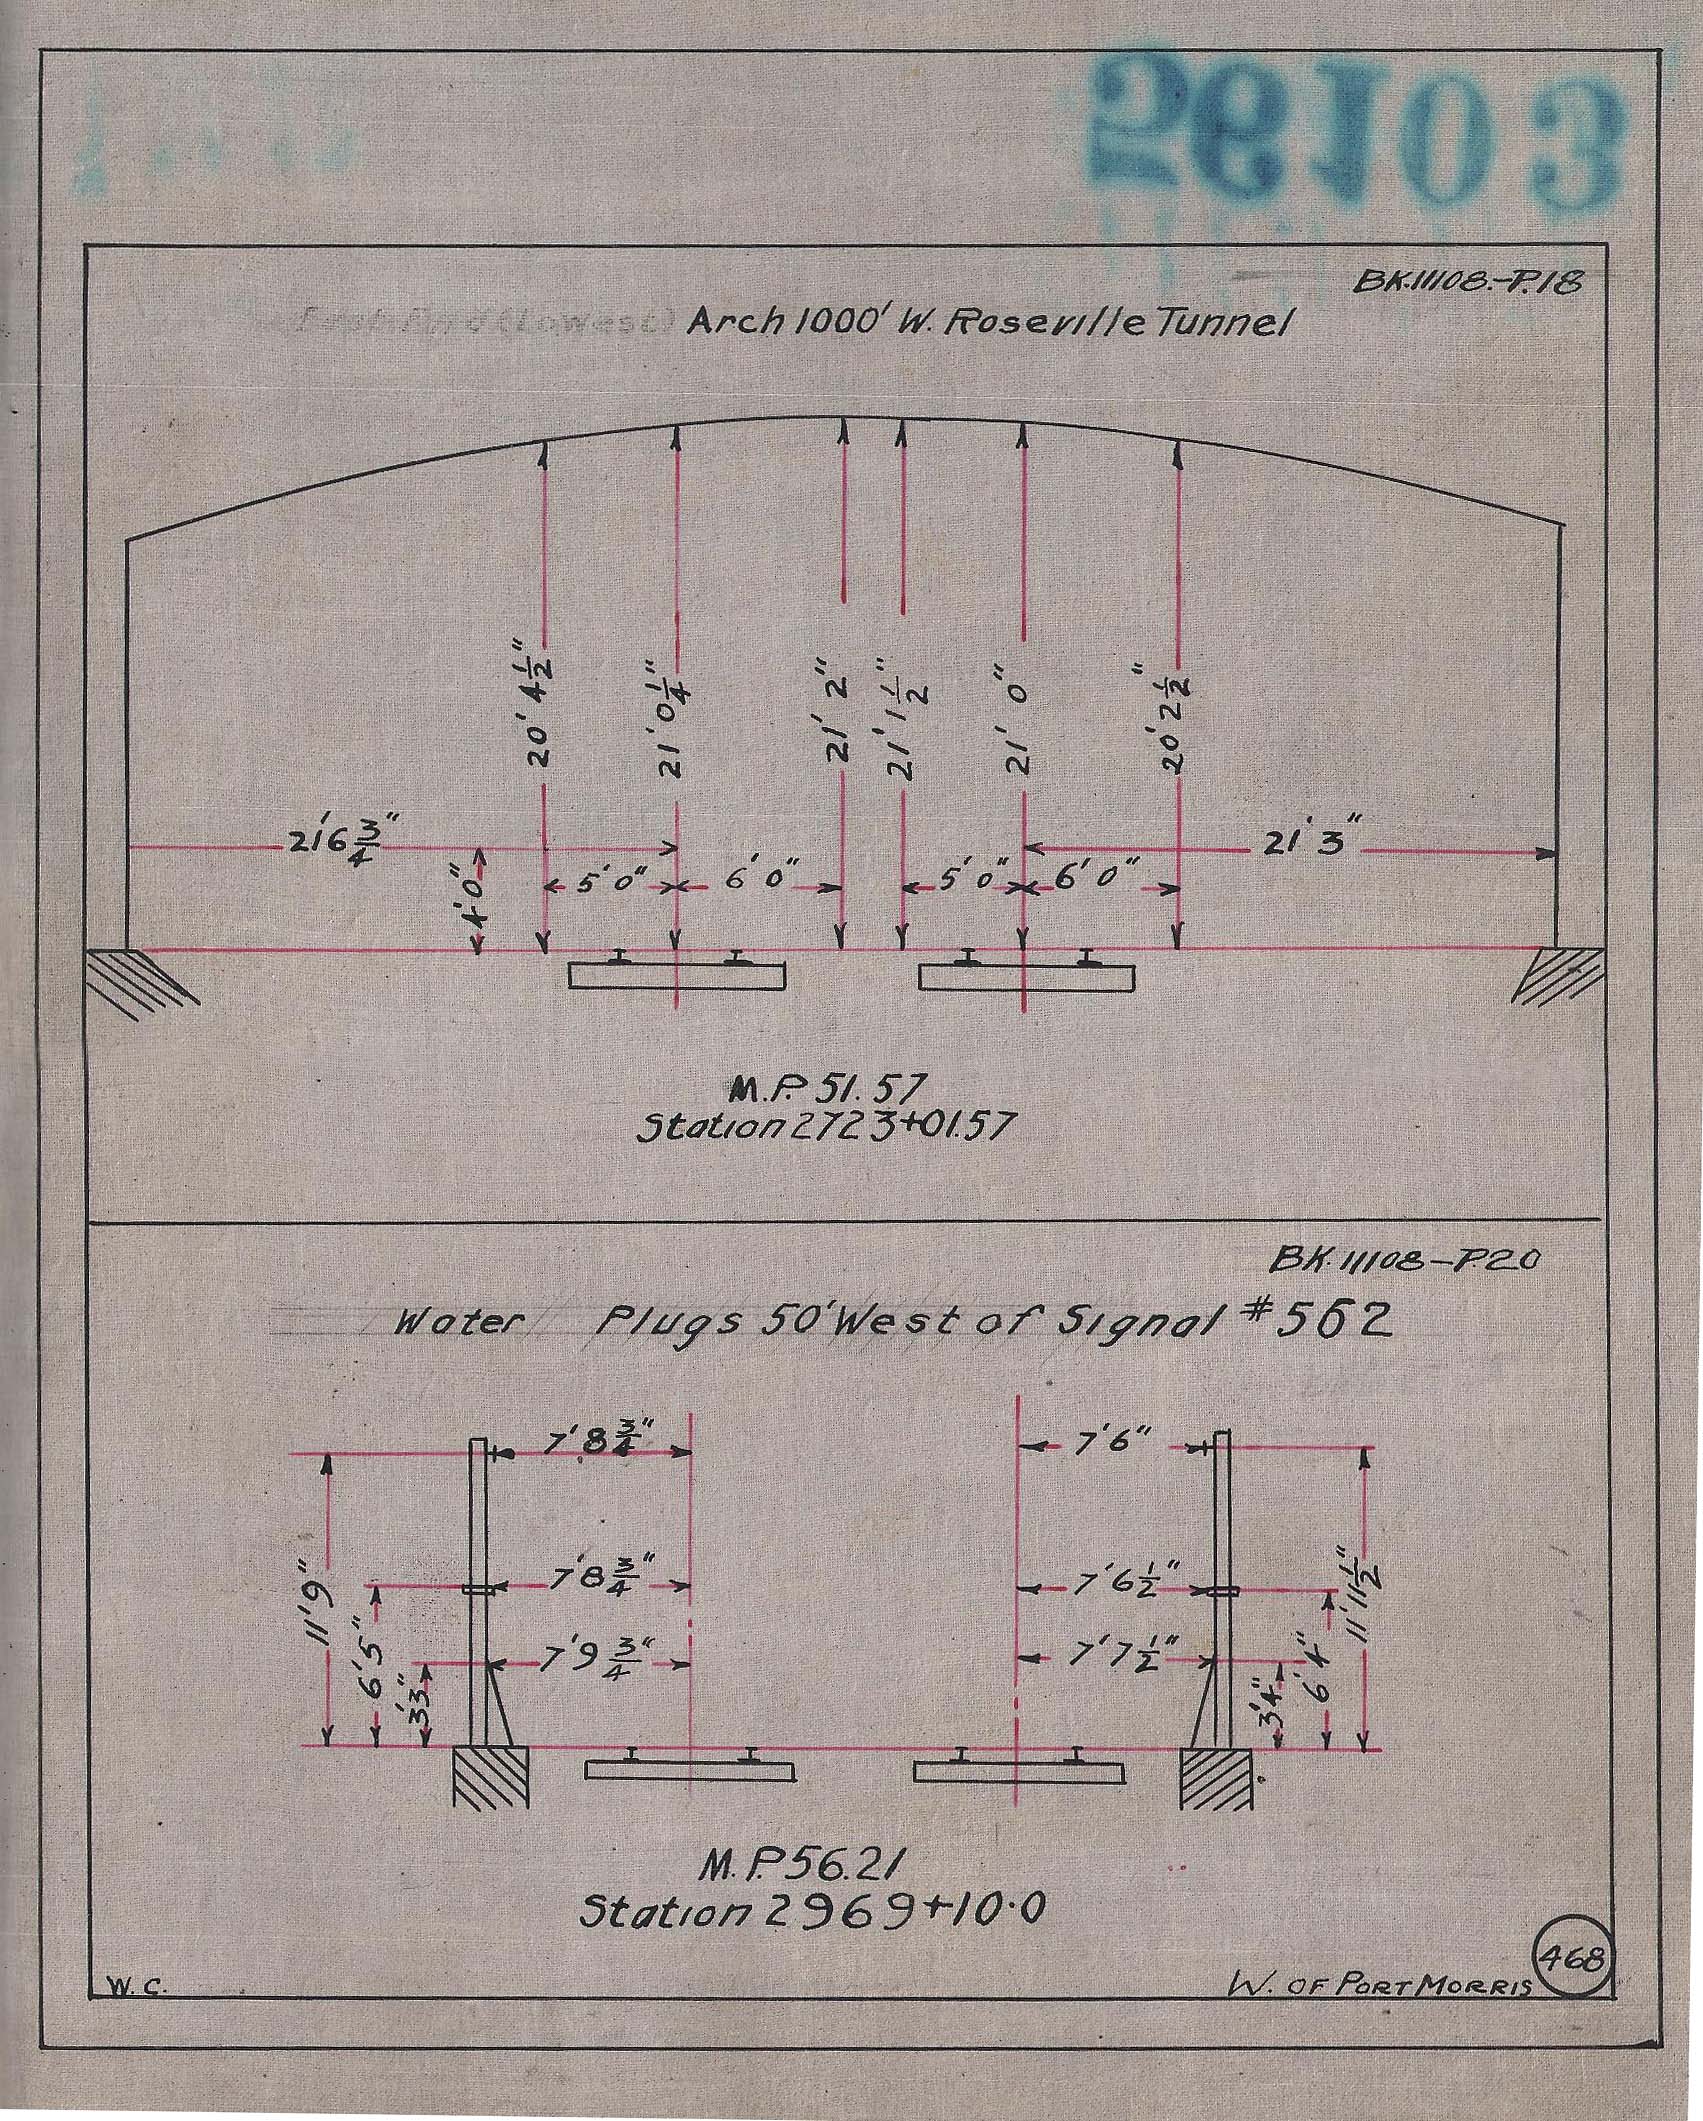 56103
BK.11108.-P.18
Arch 1000' W. Roseville Tunnel
20' 4 1/2"
21' 0 1/4"
21' 2"
21' 1 1/2"
21' 0"
20' 2 1/2"
21'6 3/4"
21' 3"
4'0"
5'0"
6'0"
5'0"
6'0"
M.P. 51.57
Station 2723+01.57
BK.11108-P.20
Water Plugs 50' West of Signal #562
7'8 3/4"
7'6"
7'8 3/4"
7'6 1/2"
7'9 3/4"
7'7 1/2"
11'9"
6'5"
3'3"
3'4"
6'4"
11'11 1/2"
M.P. 56.21
Station 2969+10.0
W. C.
W. OF PORT MORRIS
468